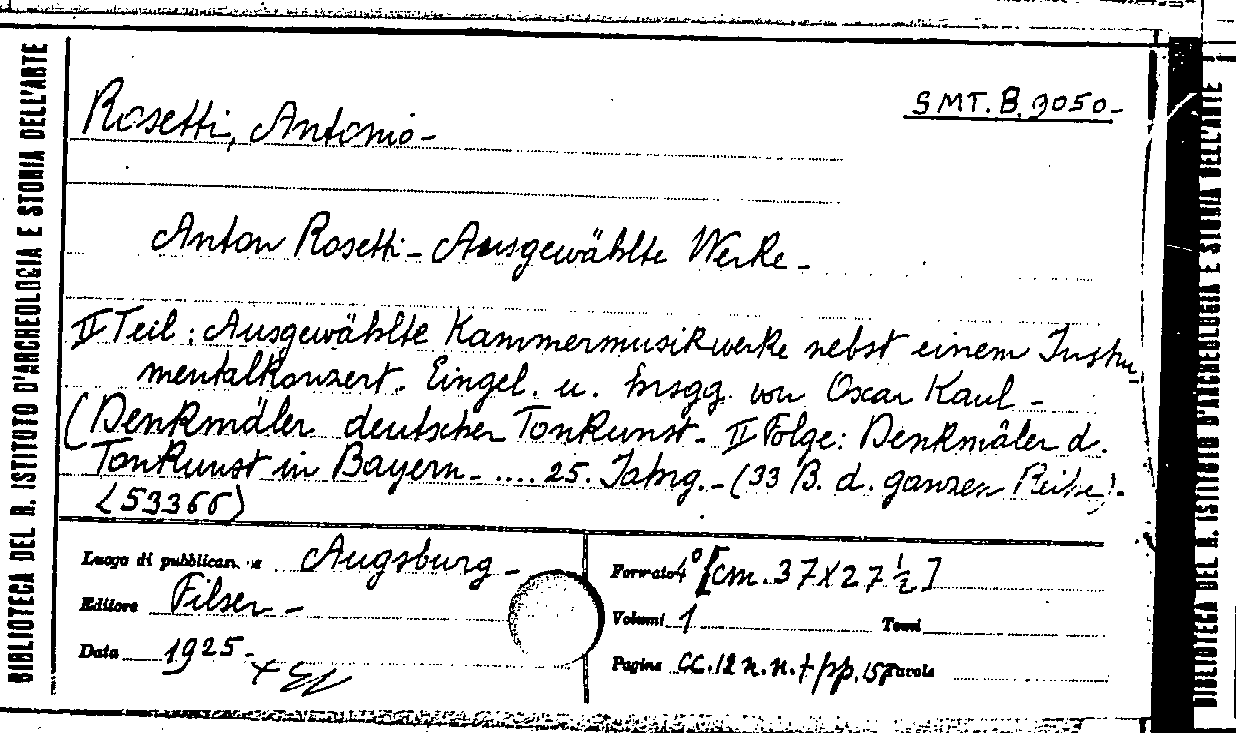 BIBLIOTECA DEL R. ISTITUTO D'ARCHEOLOGIA E STORIA DELL'ARTE
SMT. B. 9050-
Rosetti, Antonio-
Anton Rosetti - Ausgewählte Werke -
II Teil: Ausgewählte Kammermusikwerke nebst einem Instru-
mentalkonzert. Eingel. u. hrsgg. von Oscar Kaul -
(Denkmäler deutscher Tonkunst - II Folge: Denkmäler d.
Tonkunst in Bayern - .... 25. Jahrg. - (33 B. d. ganzen Reihe).-
(53366)
Luogo di pubblicaz. Augsburg -
Editore Filser -
Data 1925 -
Formato 4° [cm. 37x27 ½]
Volumi 1 Tomi
Pagine CC. 12 n. n. + pp. 157 Tavole
BIBLIOTECA DEL R. ISTITUTO D'ARCHEOLOGIA E STORIA DELL'ARTE